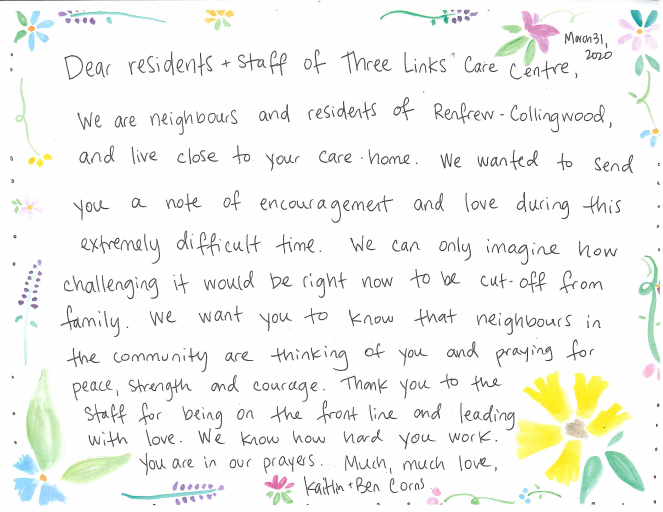 March 31,
2020
Dear residents + staff of Three Links Care Centre,
We are neighbours and residents of Renfrew-Collingwood,
and live close to your care-home. We wanted to send
you a note of encouragement and love during this
extremely difficult time. We can only imagine how
challenging it would be right now to be cut-off from
family. We want you to know that neighbours in
the community are thinking of you and praying for
peace, strength and courage. Thank you to the
staff for being on the front line and leading
with love. We know how hard you work.
You are in our prayers. Much, much love,
Kaitlin + Ben Corns